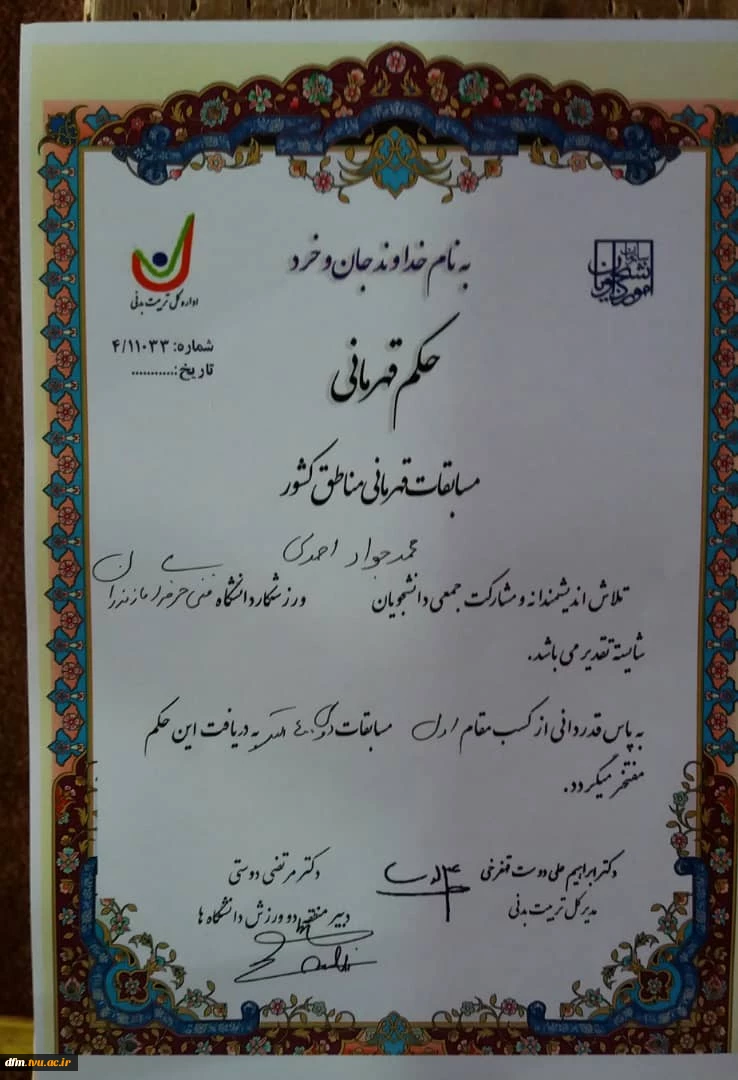 به نام خداوند جان و خرد
اداره کل تربیت بدنی
شماره: ۴/۱۱۰۳۳
تاریخ:...........
حکم قهرمانی
مسابقات قهرمانی مناطق کشور
محمدجواد احمدی
تلاش اندیشمندانه و مشارکت جمعی دانشجویان ورزشکار دانشگاه فنی حرفه ای مازندران
شایسته تقدیر می باشد.
به پاس قدردانی از کسب مقام اول مسابقات دوی ۴۰۰ به دریافت این حکم
مفتخر میگردد.
دکتر ابراهیم علی دوست قهفرخی
مدیر کل تربیت بدنی
دکتر مرتضی دوستی
دبیر منطقه دو ورزش دانشگاه ها
dfm.tvu.ac.ir